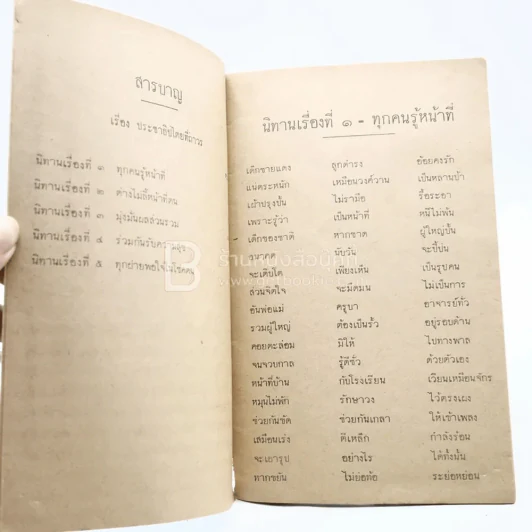 สารบาญ
เรื่อง ประชาธิปไตยที่ถาวร
นิทานเรื่องที่ ๑ ทุกคนรู้หน้าที่
นิทานเรื่องที่ ๒ ต่างไม่ลี้หน้าที่ตน
นิทานเรื่องที่ ๓ มุ่งมั่นผลส่วนรวม
นิทานเรื่องที่ ๔ ร่วมกันรับความสุข
นิทานเรื่องที่ ๕ ทุกฝ่ายพอใจในโชคตน
นิทานเรื่องที่ ๑ - ทุกคนรู้หน้าที่
เด็กชายแดง ลูกดำรง อ้อยคงรัก
แนตระหนัก เหมือนวงศ์วาน เป็นหลานป้า
เฝ้าปรุงปั้น ไม่รามือ รื้อระอา
เพราะรู้ว่า เป็นหน้าที่ หนีไม่พ้น
เด็กของชาติ หากขาด ผู้ใหญ่ปั้น
นับวัน จะปี้ป่น
จะเติบโต เพียงเห็น เป็นรูปคน
ส่วนจิตใจ จะมืดมน ไม่เป็นการ
อันพ่อแม่ ครูบา อาจารย์ทั่ว
รวมผู้ใหญ่ ต้องเป็นรั้ว อยู่รอบด้าน
คอยตะล่อม มิให้ ไปทางพาล
จนจวบกาล รู้ดีชั่ว ด้วยตัวเอง
หน้าที่บ้าน กับโรงเรียน เวียนเหมือนจักร
หมุนไม่พัก รักษาวง ไว้ตรงเผง
ช่วยกันขัด ช่วยกันเกลา ให้เข้าเพลง
เสมือนเร่ง ตีเหล็ก กำลังร้อน
จะเอารูป อย่างไร ได้ทั้งนั้น
หากขยัน ไม่ย่อท้อ ระย่อหย่อน